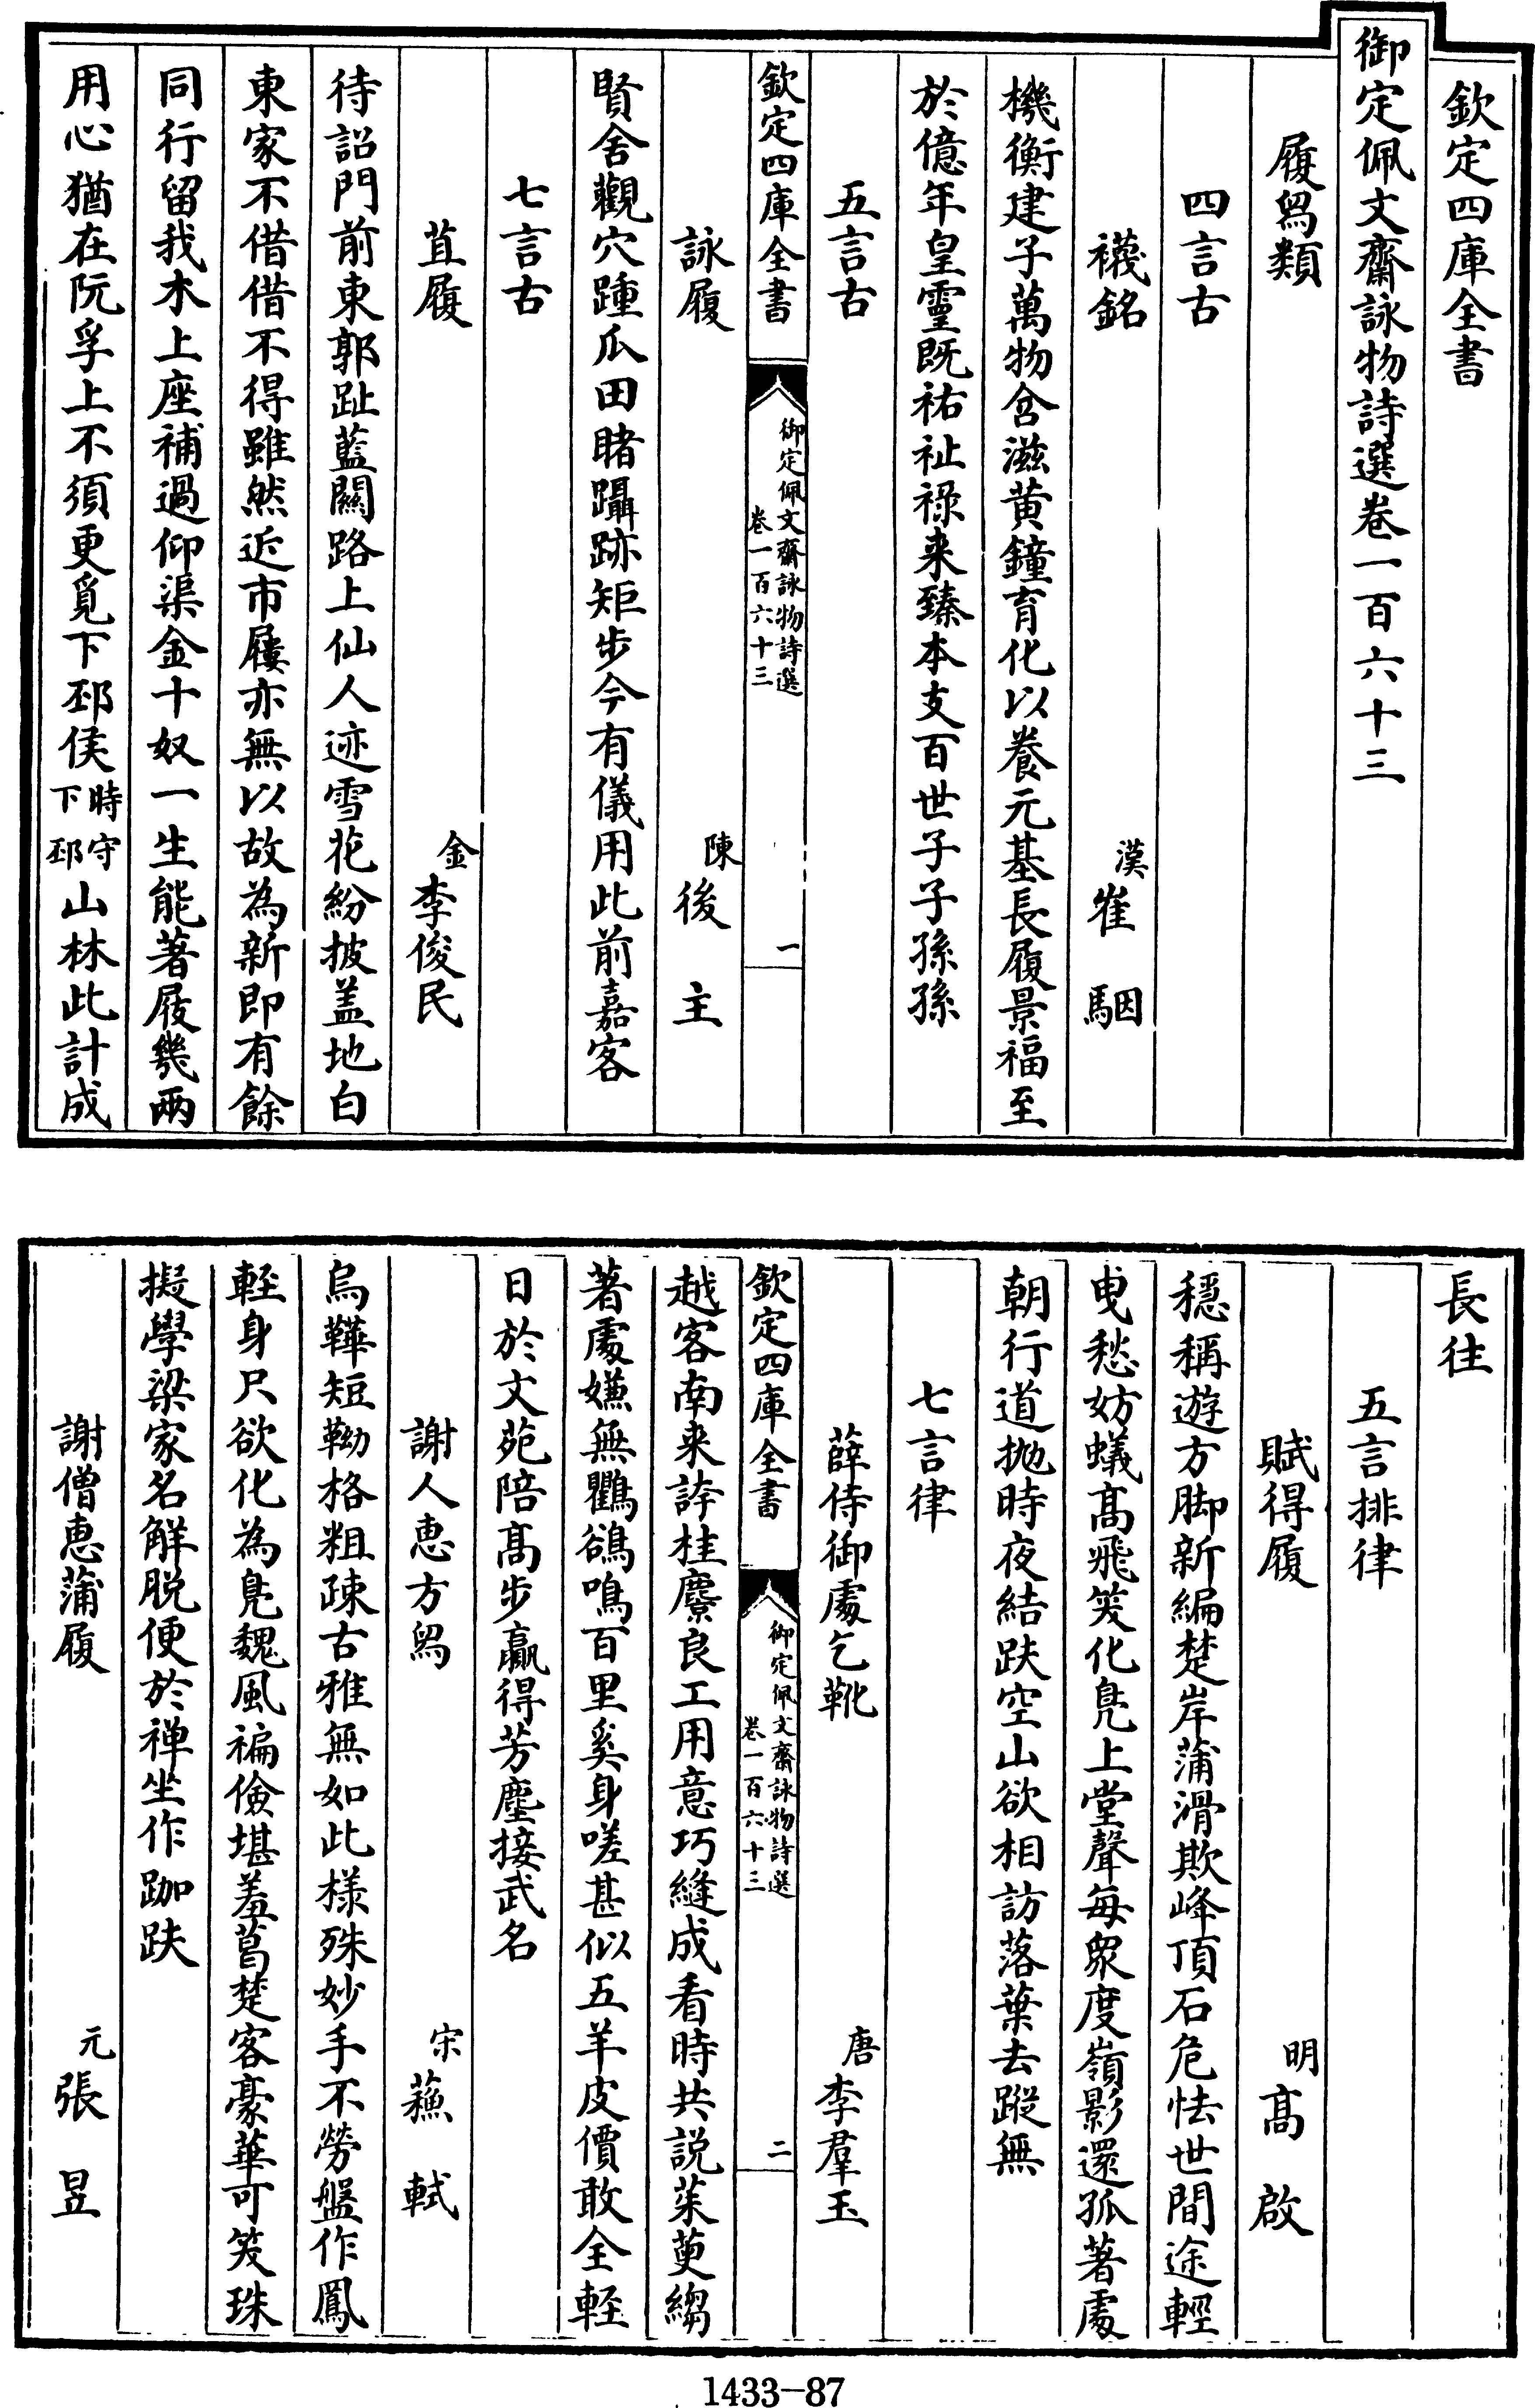 欽定四庫全書
御定佩文齋詠物詩選卷一百六十三
履舄類
四言古
襪銘 漢崔駰
機衡建子萬物含滋黄鐘育化以養元基長履景福至
於億年皇靈既祐祉祿来臻本支百世子子孫孫
五言古
欽定四庫全書
御定佩文齋詠物詩選
卷一百六十三
一
詠履 陳後主
賢舍觀穴踵瓜田睹躡跡矩步今有儀用此前嘉客
七言古
苴履 金李俊民
待詔門前東郭趾藍關路上仙人迹雪花紛披盖地白
東家不借借不得雖然近市屨亦無以故為新即有餘
同行留我木上座補過仰渠金十奴一生能著屐幾兩
用心猶在阮孚上不須更覓下邳侯時守下邳山林此計成
長往
五言排律
賦得履 明高啟
穩稱遊方脚新編楚岸蒲滑欺峰頂石危怯世間途輕
曳愁妨蟻高飛笑化鳬上堂聲每衆度嶺影還孤著處
朝行道抛時夜結趺空山欲相訪落葉去蹤無
七言律
薛侍御處乞靴 唐李羣玉
欽定四庫全書
御定佩文齋詠物詩選
卷一百六十三
二
越客南来誇桂麖良工用意巧縫成看時共説茱萸縐
著處嫌無鸜鵒鳴百里奚身嗟甚似五羊皮價敢全軽
日於文苑陪高步贏得芳塵接武名
謝人惠方舄 宋蘇軾
烏鞾短靿格粗疎古雅無如此様殊妙手不勞盤作鳳
軽身只欲化為鳬魏風褊儉堪羞葛楚客豪華可笑珠
擬學梁家名解脱便於禅坐作跏趺
謝僧惠蒲履 元張昱
1433-87